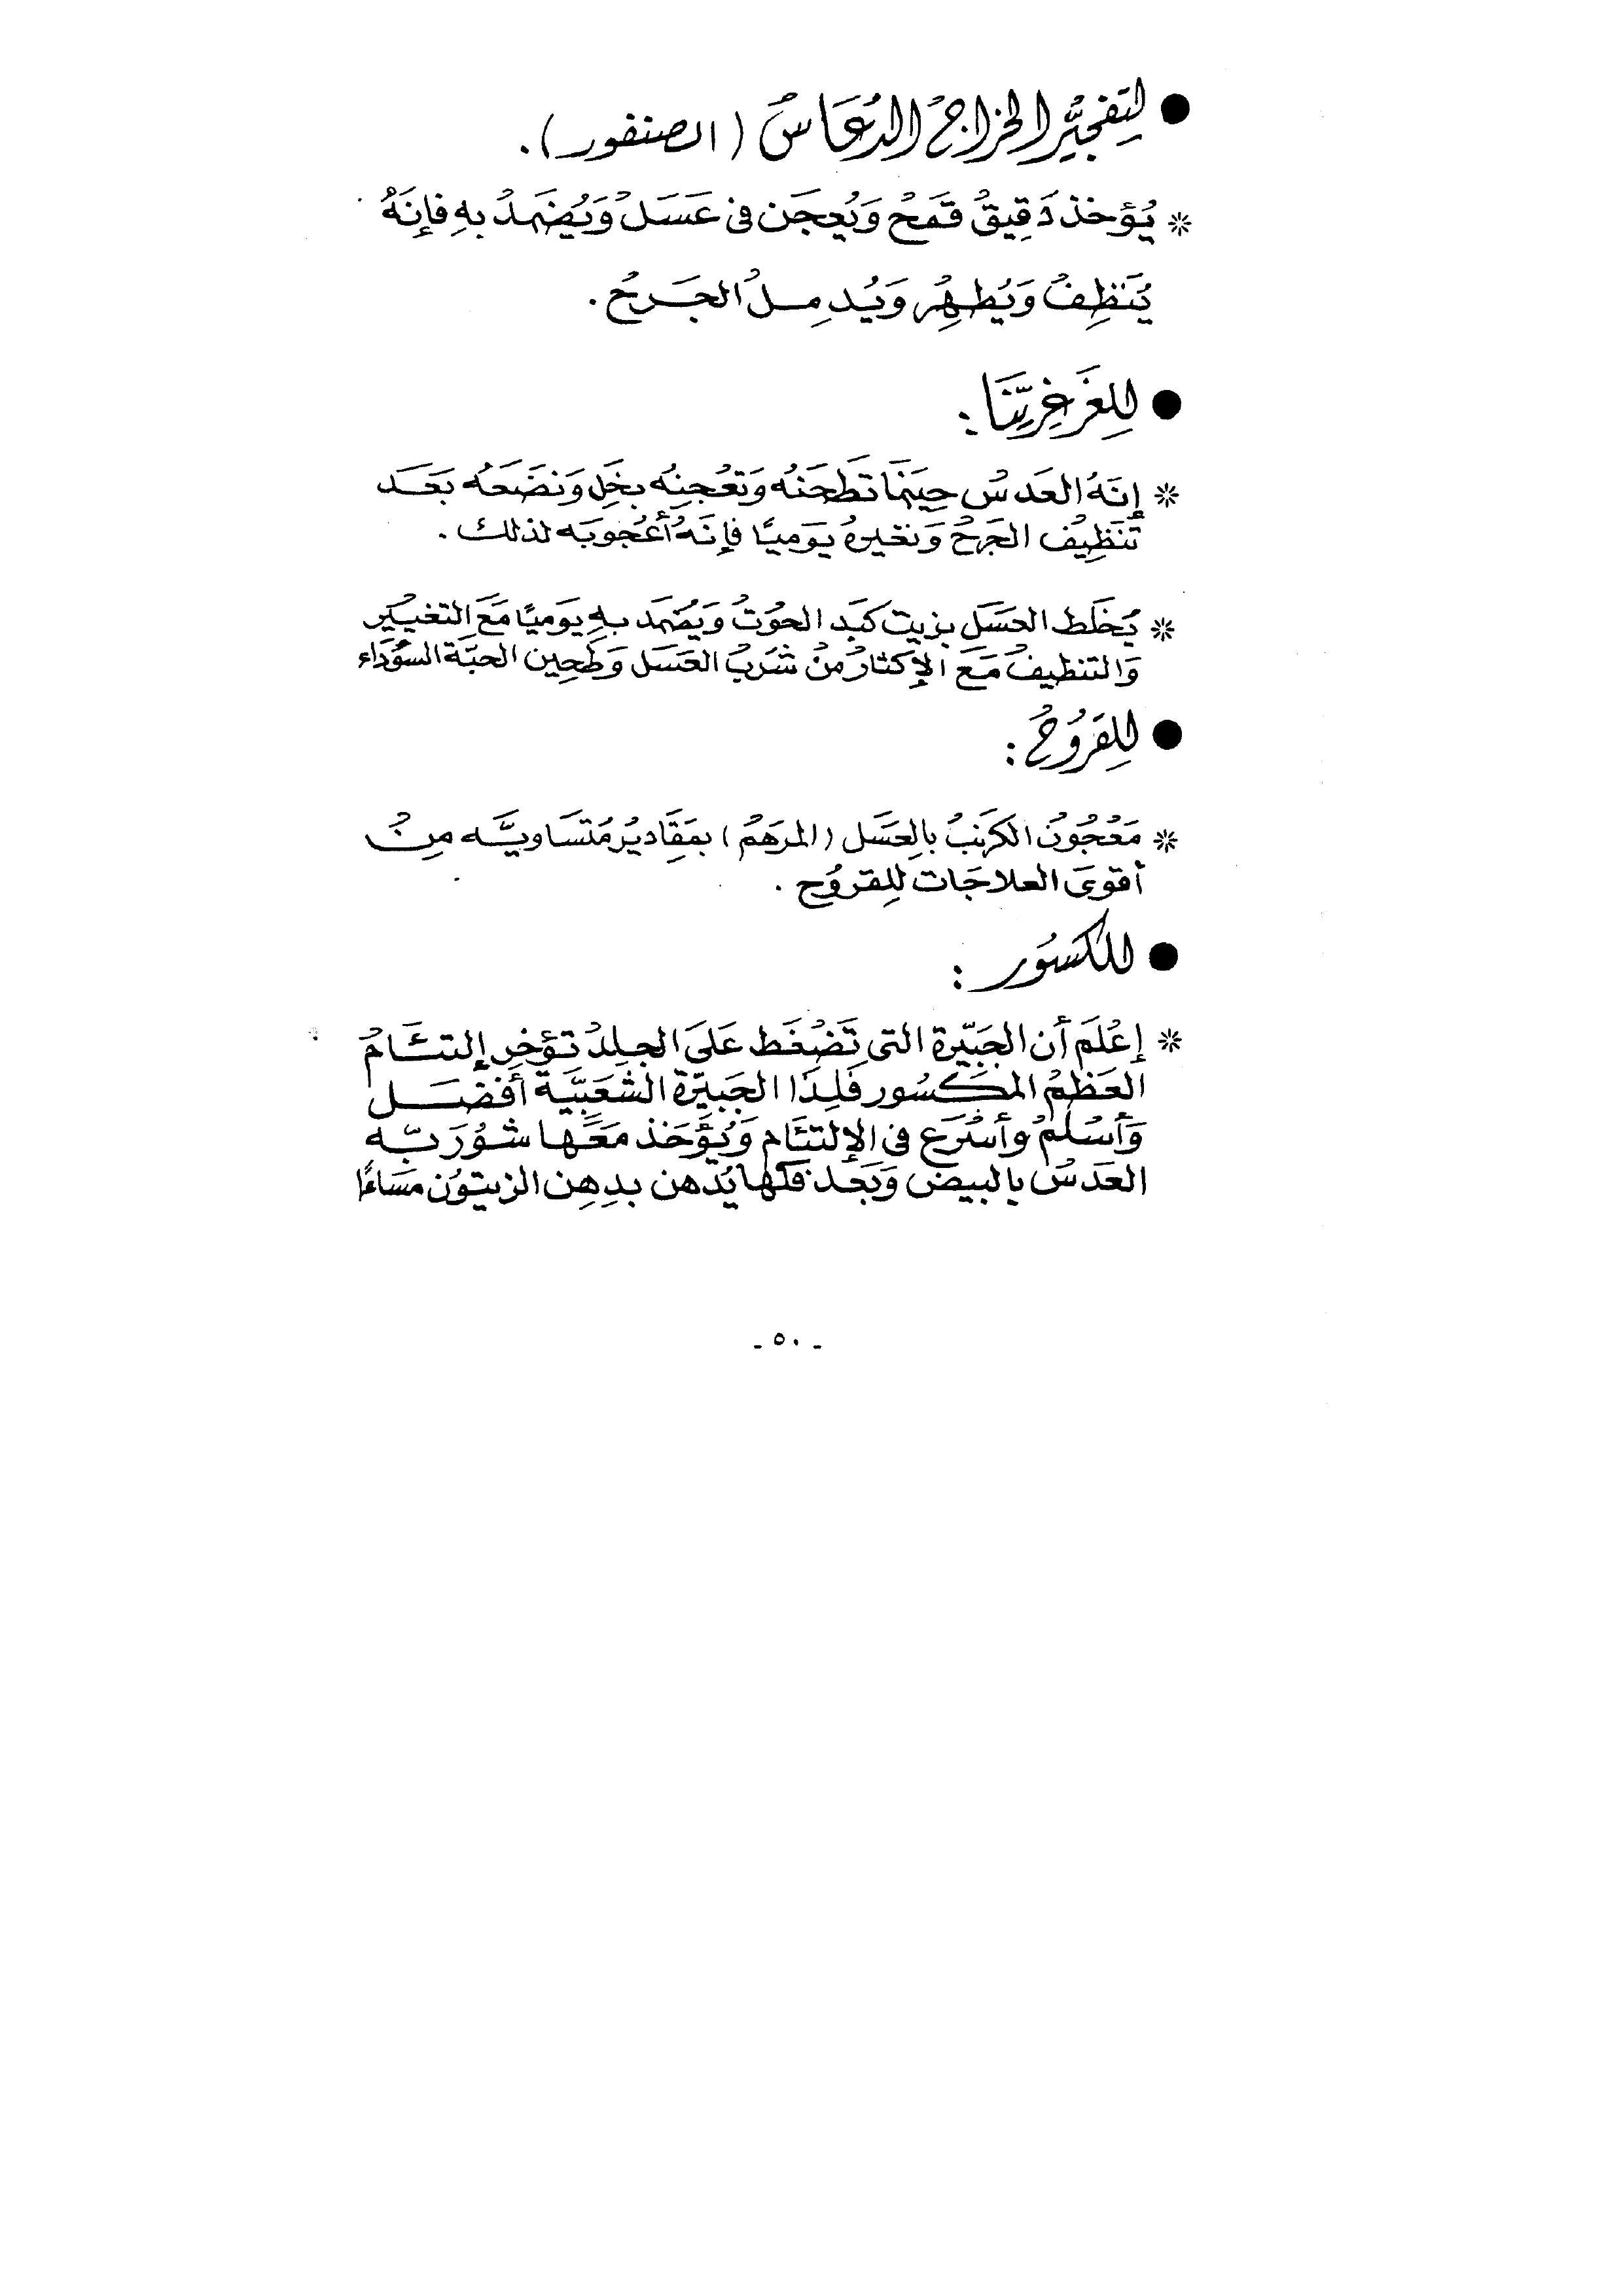 ● لتفجير الخراج الدعاس (الصنفور).
* يُؤخذ دَقِيقُ قمَحُ وَيُعجَن فى عَسَلُ وَيُضَمدُ بهِ فإنَهُ
يُنَظِفُ وَيُطهِرُ وَيُدمِلُ الجَرحُ .
● لِلغَرغَرِينَا :
* إنَهُ العَدسُ حِينَمَا تَطحَنهُ وَتعُجنِهُ بخَلِ وَنضَعَهُ بَعَد
تَنَظِيُف الجَرحُ وَنغيرهُ يَوَميًا فإنَهُ أعُجُوبَه لذلك .
* يُخَلَط العَسَل بزيت كَبَد الحوُتُ وَيُضمَد بهِ يَوَميًا مَعَ التغييُير
وَالتنظيفُ مَعَ الإكثارُ منُ شُرَبُ العَسَل وَطَحِين الحبَة السَوُدَاء
● لِلقرُوحُ :
* مَعُجُونُ الكرَنبُ بالِعسَل (المرَهَمُ) بمَقَاديُر مُتسَاويَّه مِنُ
أقوىَ العلاجَات لِلقروُح .
● للكسُوَر :
* إعُلَم أن الجَبَيّرة التى تَضُغَط عَلىَ الجلِدُ تؤخرِ إلتئَامُ
العَظمُ المكسُور فَلِذَا الجَبيَرّة الشعَبيَّة أفضَل
وَأسُلمُ وأسُرَع فى الإلتئَام وَيُؤَخَذ مَعََها شوُرَبّه
العَدَسُ بالبيض وَبَعَد فكَها يُدهن بدِهِن الزيتوُن مسَاءًا
- ٥٠ -